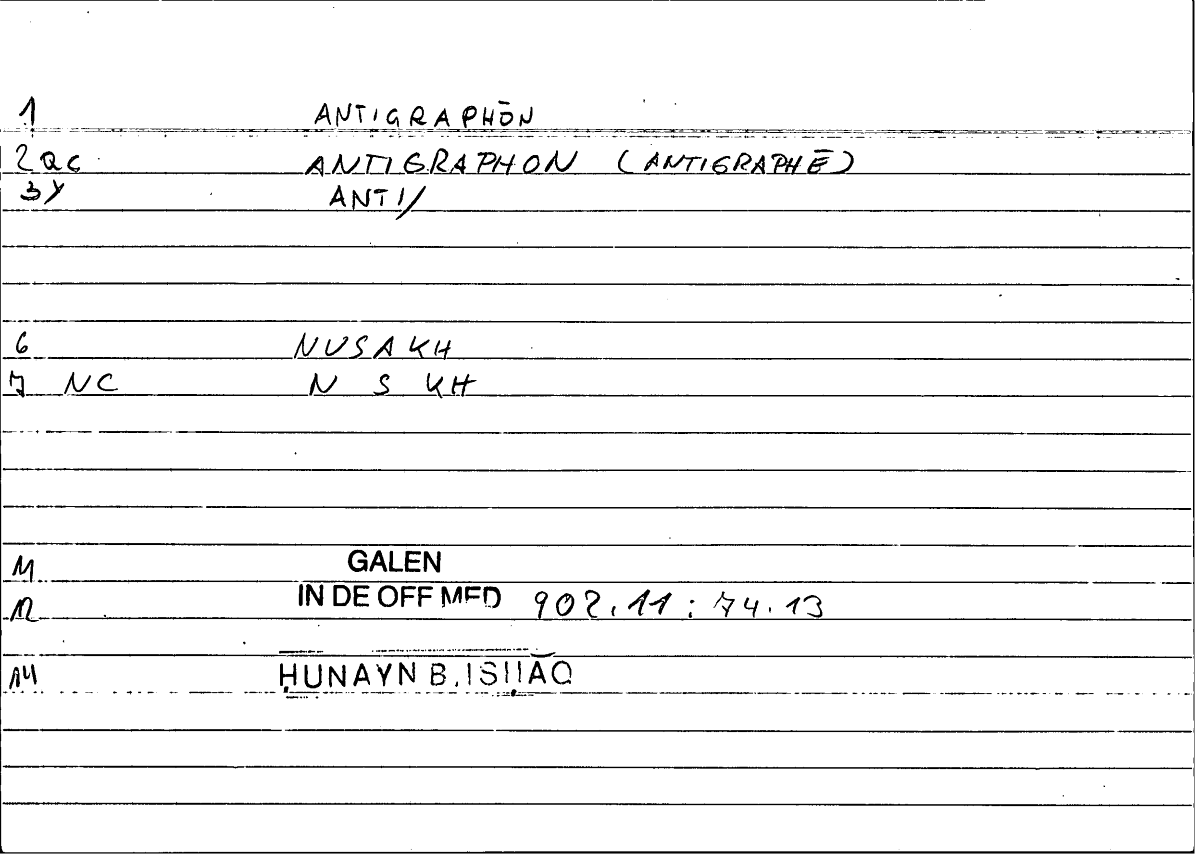 1 ANTIGRAPHŌN
2 QC ANTIGRAPHON (ANTIGRAPHĒ)
3Y ANTI/
6 NUSAKH
7 NC N S KH
11 GALEN
12 IN DE OFF MED 902.11 : 74.13
14 ḤUNAYN B. ISḤĀQ